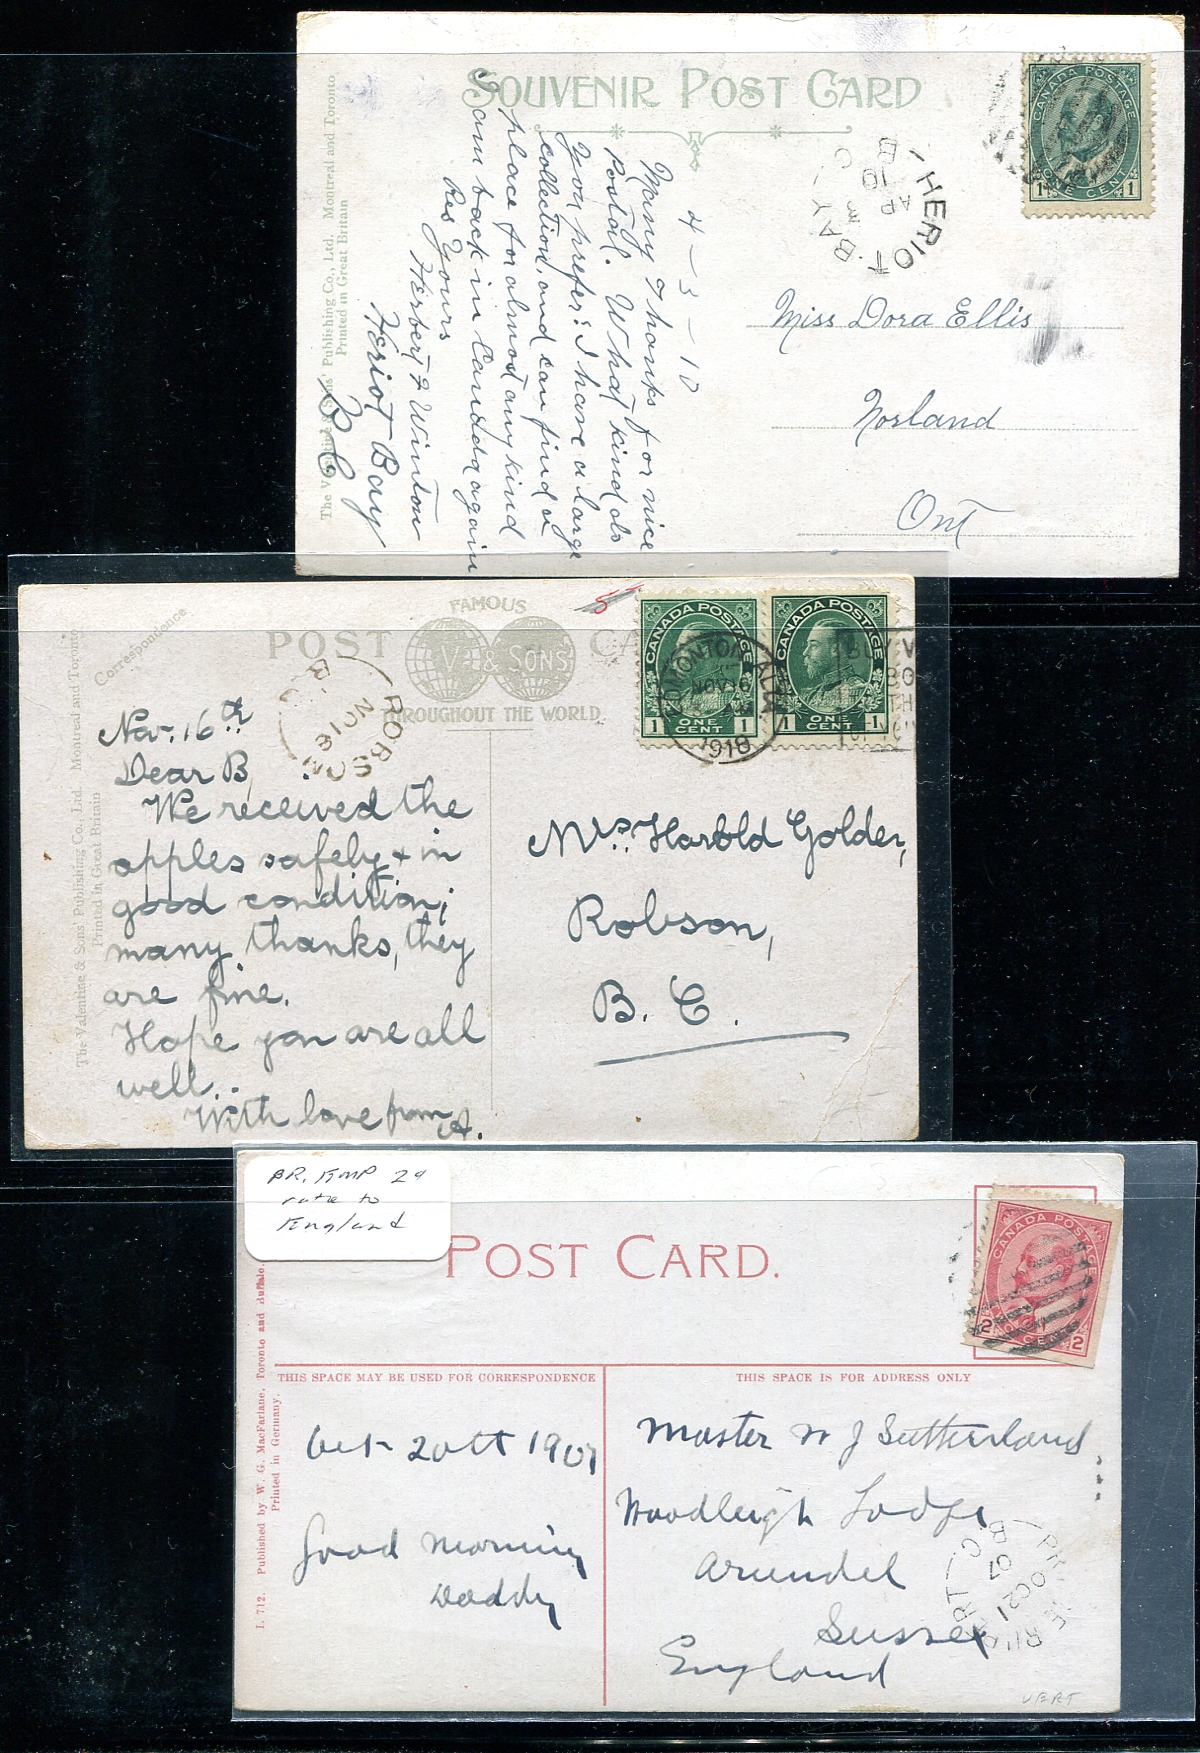 SOUVENIR POST CARD
The Valentine & Sons' Publishing Co., Ltd. Montreal and Toronto
Printed in Great Britain
CANADA POSTAGE
1 ONE CENT 1
HERIOT BAY
AP 3
10
B C
4 - 3 - 10
Many Thanks for nice
Postal. What kind do
you prefer? I have a large
collection, and can find a
place for almost any kind
I am back in Canada again
Res Yours
Herbert J Winton
Heriot Bay
B C
Miss Dora Ellis
Norland
Ont
Correspondence
POST
FAMOUS
V & SONS
THROUGHOUT THE WORLD
CA
The Valentine & Sons' Publishing Co., Ltd. Montreal and Toronto
Printed in Great Britain
5
CANADA POSTAGE
1 ONE CENT 1
CANADA POSTAGE
1 ONE CENT 1
EDMONTON ALTA
NOV 16
1918
BUY V
BO
ROBSON
NO 18
B.C
Nov. 16th
Dear B,
We received the
apples safely & in
good condition;
many thanks, they
are fine.
Hope you are all
well.
With love from A.
Mrs. Harold Golder,
Robson,
B. C.
BR. EMP 2¢
rate to
England
POST CARD.
CANADA POSTAGE
2 TWO CENTS 2
THIS SPACE MAY BE USED FOR CORRESPONDENCE
THIS SPACE IS FOR ADDRESS ONLY
I. 712. Published by W. G. MacFarlane, Toronto and Buffalo.
Printed in Germany.
Oct 20th 1907
Good Morning
Daddy
Master W J Sutherland
Woodleigh Lodge
Arundel
Sussex
England
PRINCE RUPERT
OC 21
07
B.C.